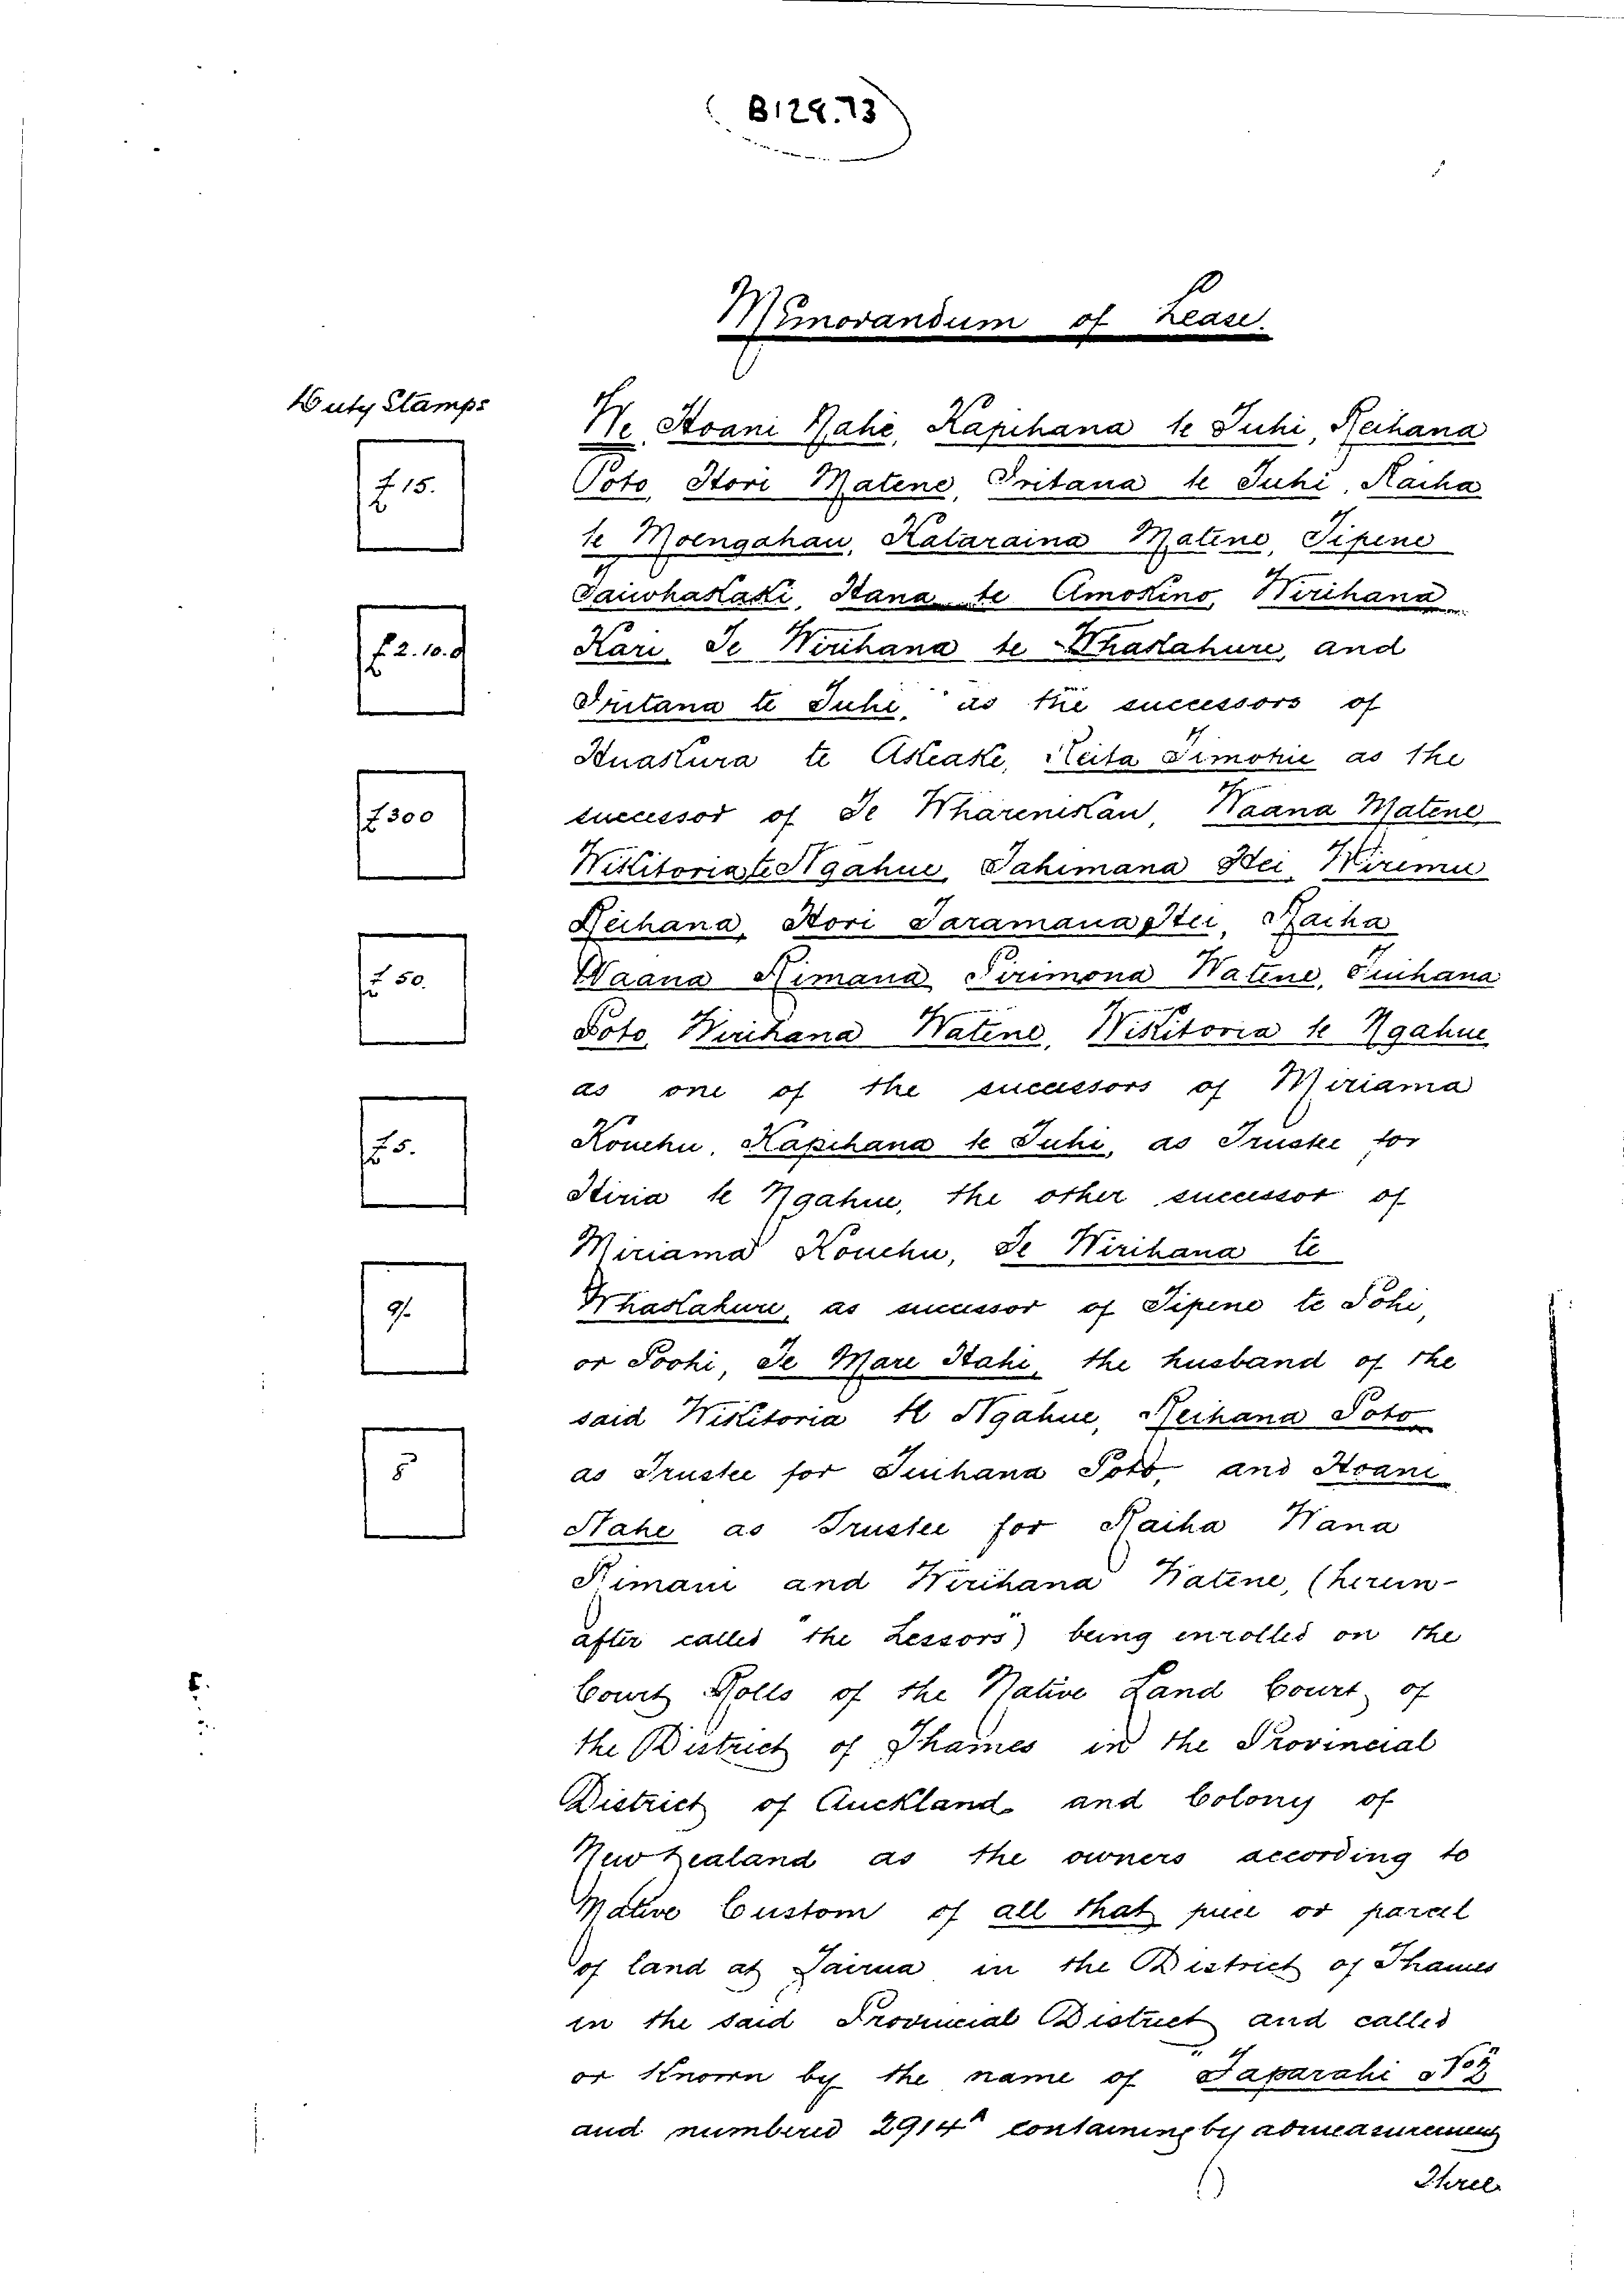 B129.73
Memorandum of Lease.
Duty Stamps
£15.
£2.10.0
£300
£50.
£5.
9/-
5
We Hoani Nahe, Kapihana te Tuhi, Reihana
Poto, Hori Matene, Pritana te Tuhi, Raiha
te Moengahau, Kataraina Matene, Tipene
Taiwhakaki, Hana te Amokino, Wirihana
Kari, Te Wirihana te Whakahure, and
Pritana te Tuhi, as the successors of
Huakura te Akeake, Reita Timotie as the
successor of Te Wharenikau, Waana Matene
Wikitoria te Ngahue, Tahimana Hei, Wiremu
Reihana, Hori Taramana Hei, Raiha
Waana Rimana, Pirimona Watene, Tuihana
Poto, Wirihana Watene, Wikitoria te Ngahue
as one of the successors of Miriama
Konehu, Kapihana te Tuhi, as Trustee for
Hiria te Ngahue, the other successor of
Miriama Konehu, Te Wirihana te
Whakahure, as successor of Tipene te Tohi,
or Toohi, Te Mare Hahi, the husband of the
said Wikitoria te Ngahue, Reihana Poto
as Trustee for Tuihana Poto, and Hoani
Nahe as Trustee for Raiha Wana
Rimani and Wirihana Watene, (herein-
after called "the Lessors") being enrolled on the
Court Rolls of the Native Land Court of
the District of Thames in the Provincial
District of Auckland and Colony of
New Zealand as the owners according to
Native Custom of all that piece or parcel
of land at Tairua in the District of Thames
in the said Provincial District and called
or known by the name of "Taparahi No 2
and numbered 2914A containing by admeasurement
Three